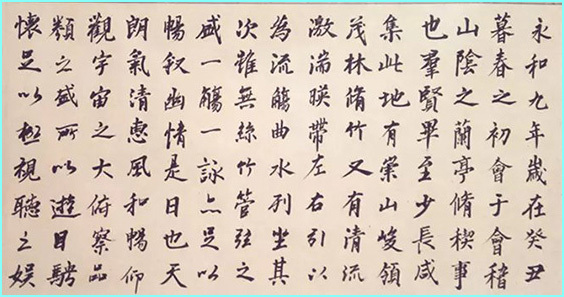 永和九年歲在癸丑
暮春之初會于會稽
山陰之蘭亭脩稧事
也羣賢畢至少長咸
集此地有崇山峻領
茂林脩竹又有清流
激湍暎帶左右引以
為流觴曲水列坐其
次雖無絲竹管弦之
盛一觴一詠亦足以
暢叙幽情是日也天
朗氣清惠風和暢仰
觀宇宙之大俯察品
類之盛所以遊目騁
懷足以極視聽之娛